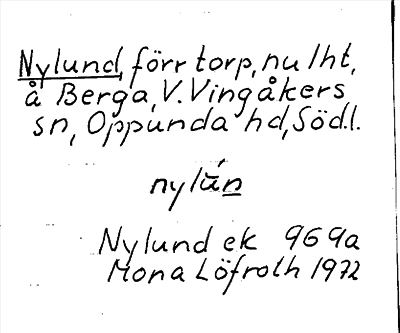 Nylund, förr torp, nu lht,
å Berga, V. Vingåkers
sn, Oppunda hd, Södl.
nylún
Nylund ek 969a
Mona Löfroth 1972